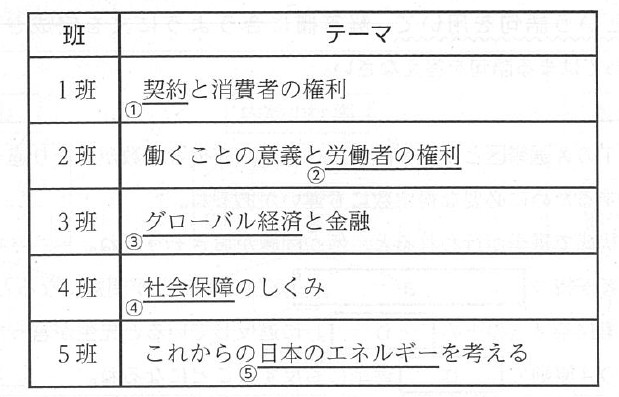 班 テーマ
1班 ①契約と消費者の権利
2班 働くことの意義と②労働者の権利
3班 ③グローバル経済と金融
4班 ④社会保障のしくみ
5班 これからの⑤日本のエネルギーを考える